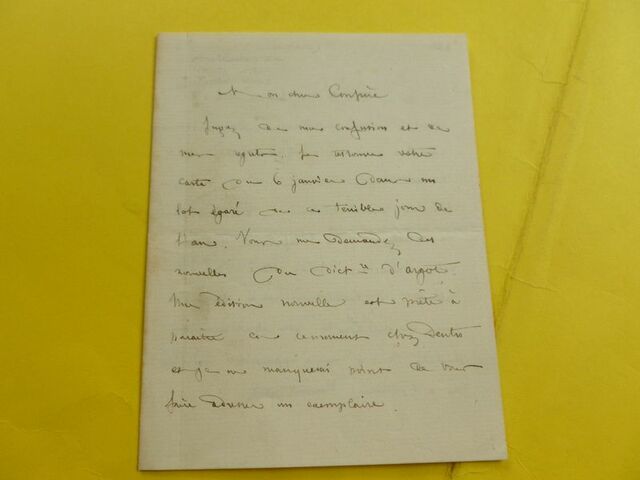 Mon cher Confrère
Jugez de ma confusion et de
mes regrets. Je retrouve votre
carte du 6 janvier dans un
lot égaré de ces terribles jours de
l'an. Vous me demandez des
nouvelles du Dict re d'argot.
Une édition nouvelle est prête à
paraître en ce moment chez Dentu
et je ne manquerai point de vous
faire adresser un exemplaire.